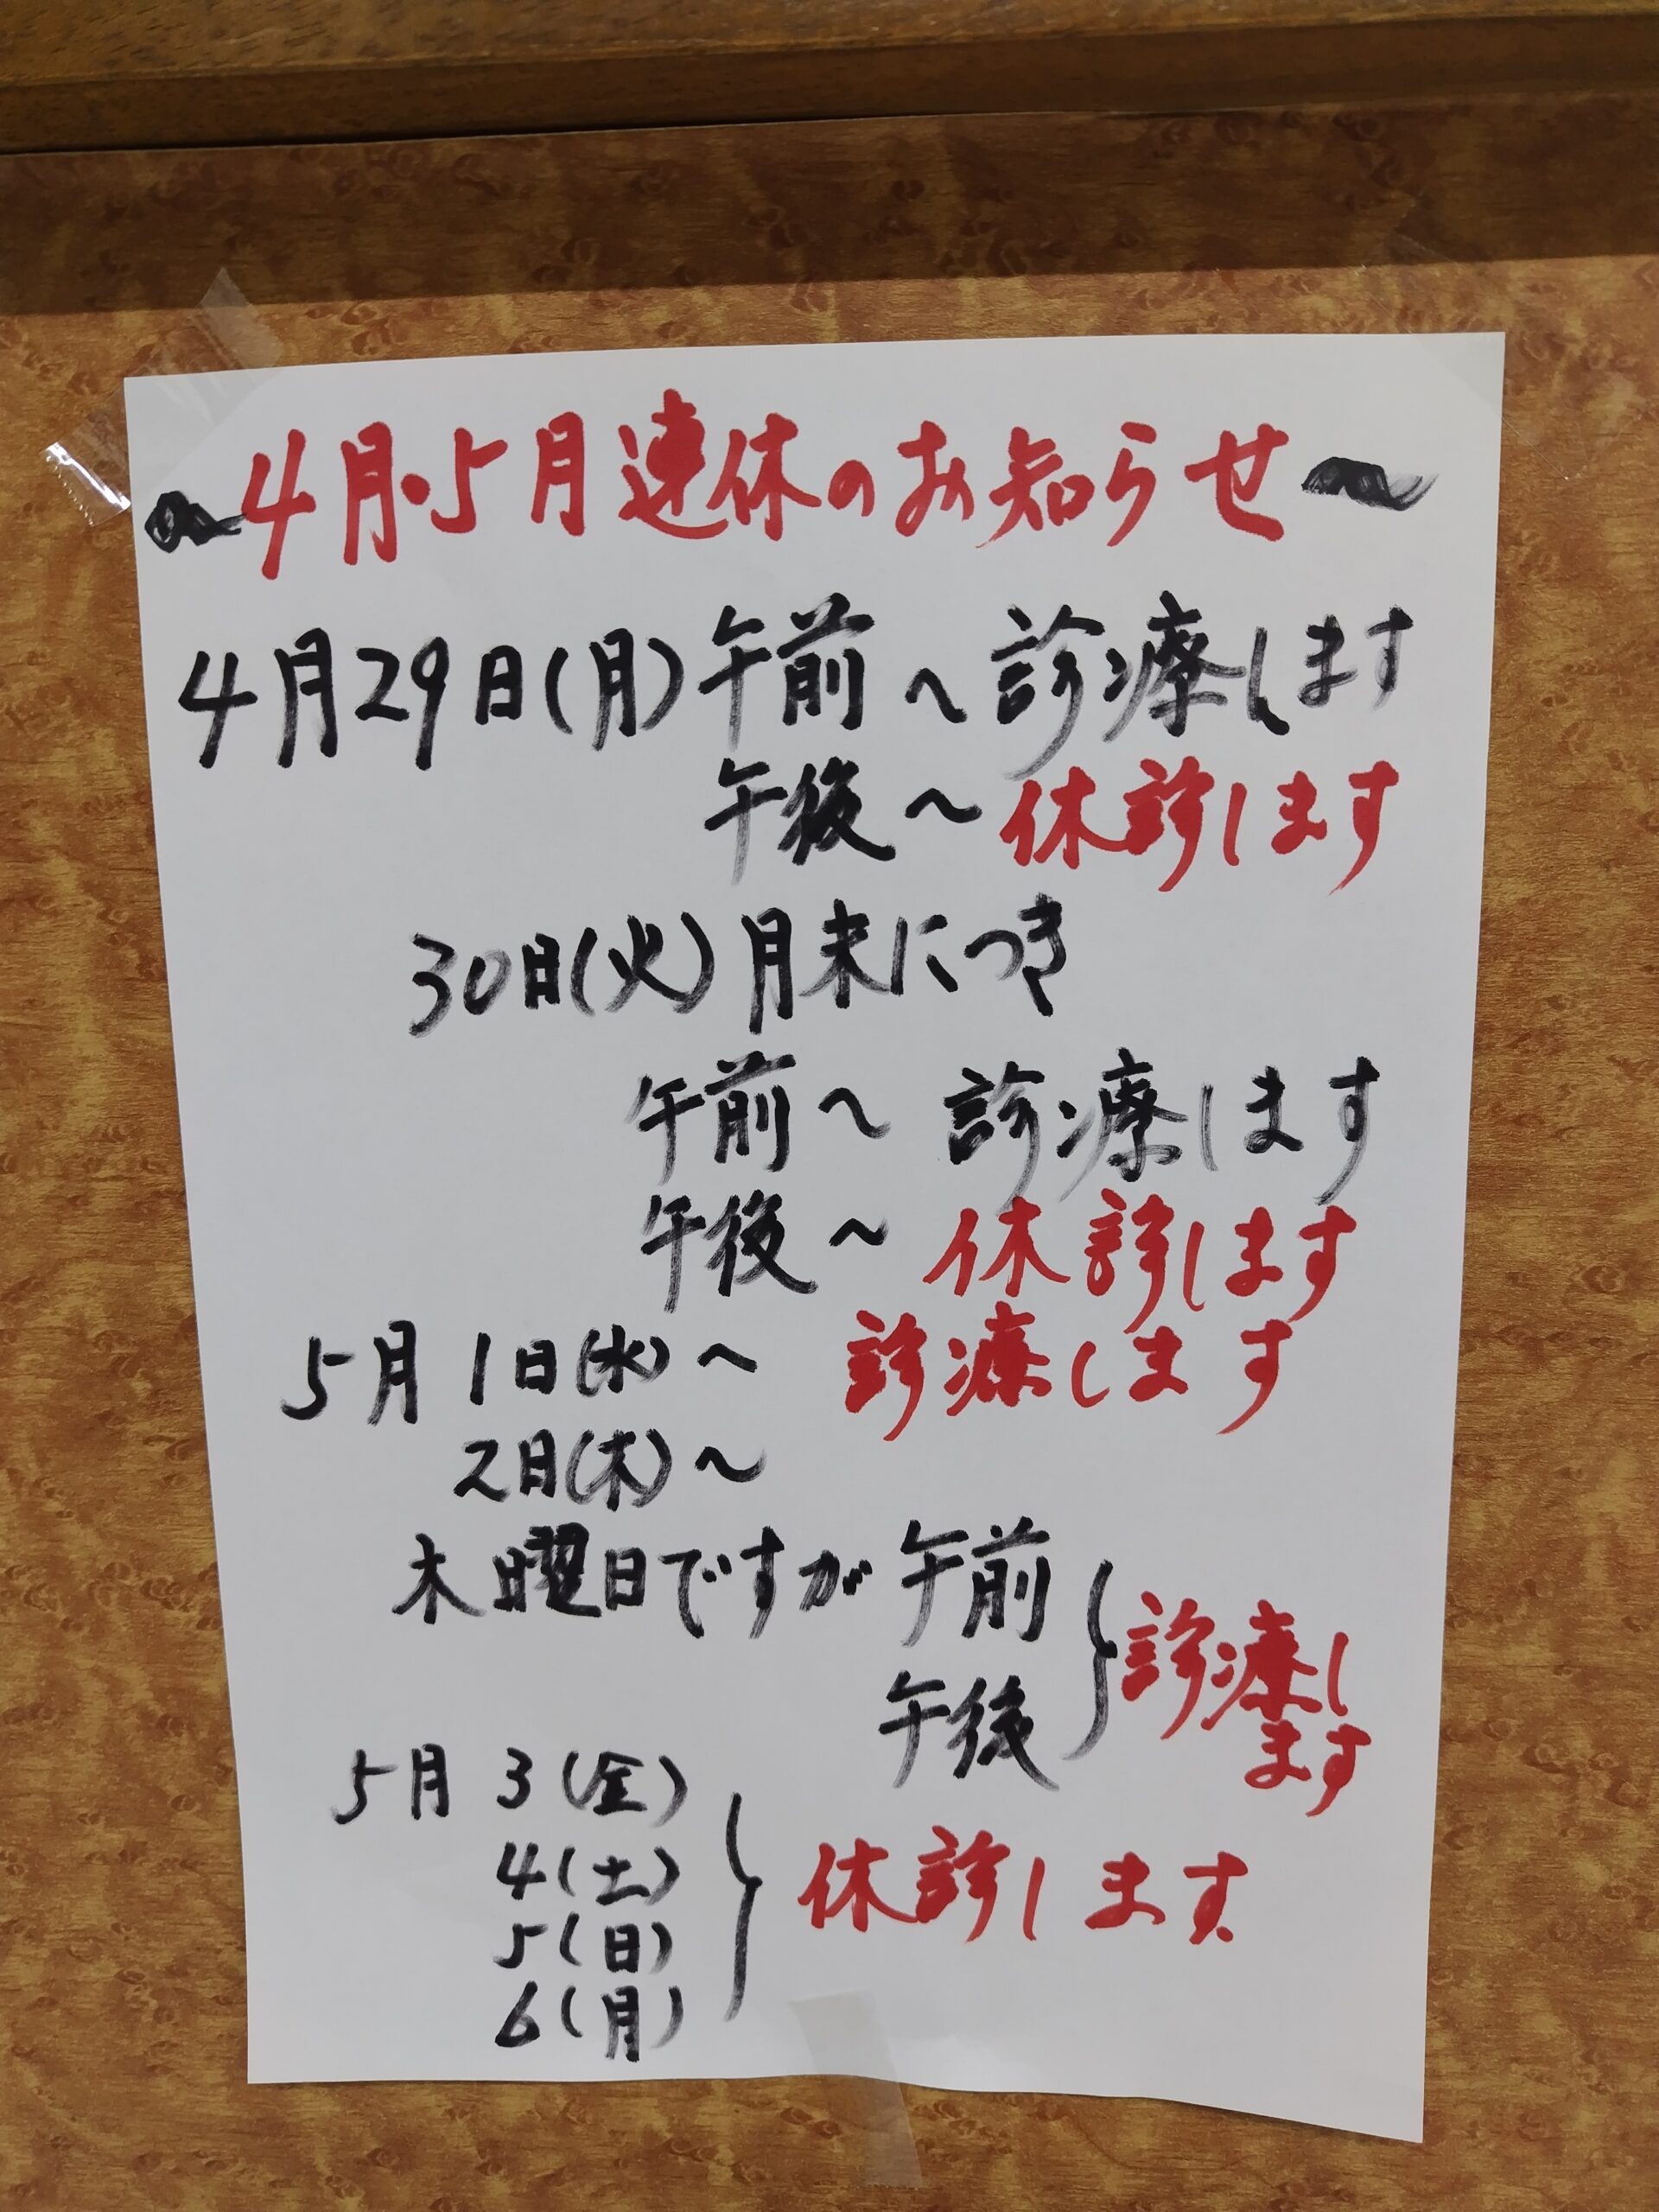 ～4月・5月連休のお知らせ～
4月29日(月)午前～診療します
午後～休診します
30日(火)月末につき
午前～診療します
午後～休診します
5月1日(水)～診療します
2日(木)～
木曜日ですが午前
午後
診療し
ます
5月3(金)
4(土)
5(日)
6(月)
休診します